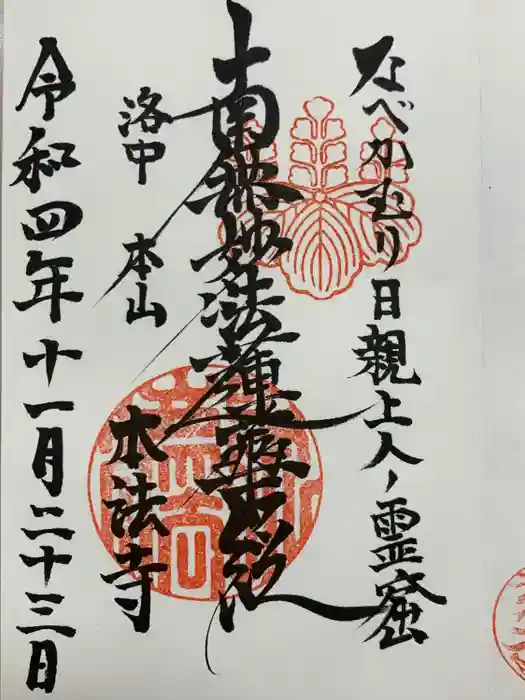 なべかむり日親上人ノ霊窟
南無妙法蓮華経
洛中
本山
本法寺
令和四年十一月二十三日